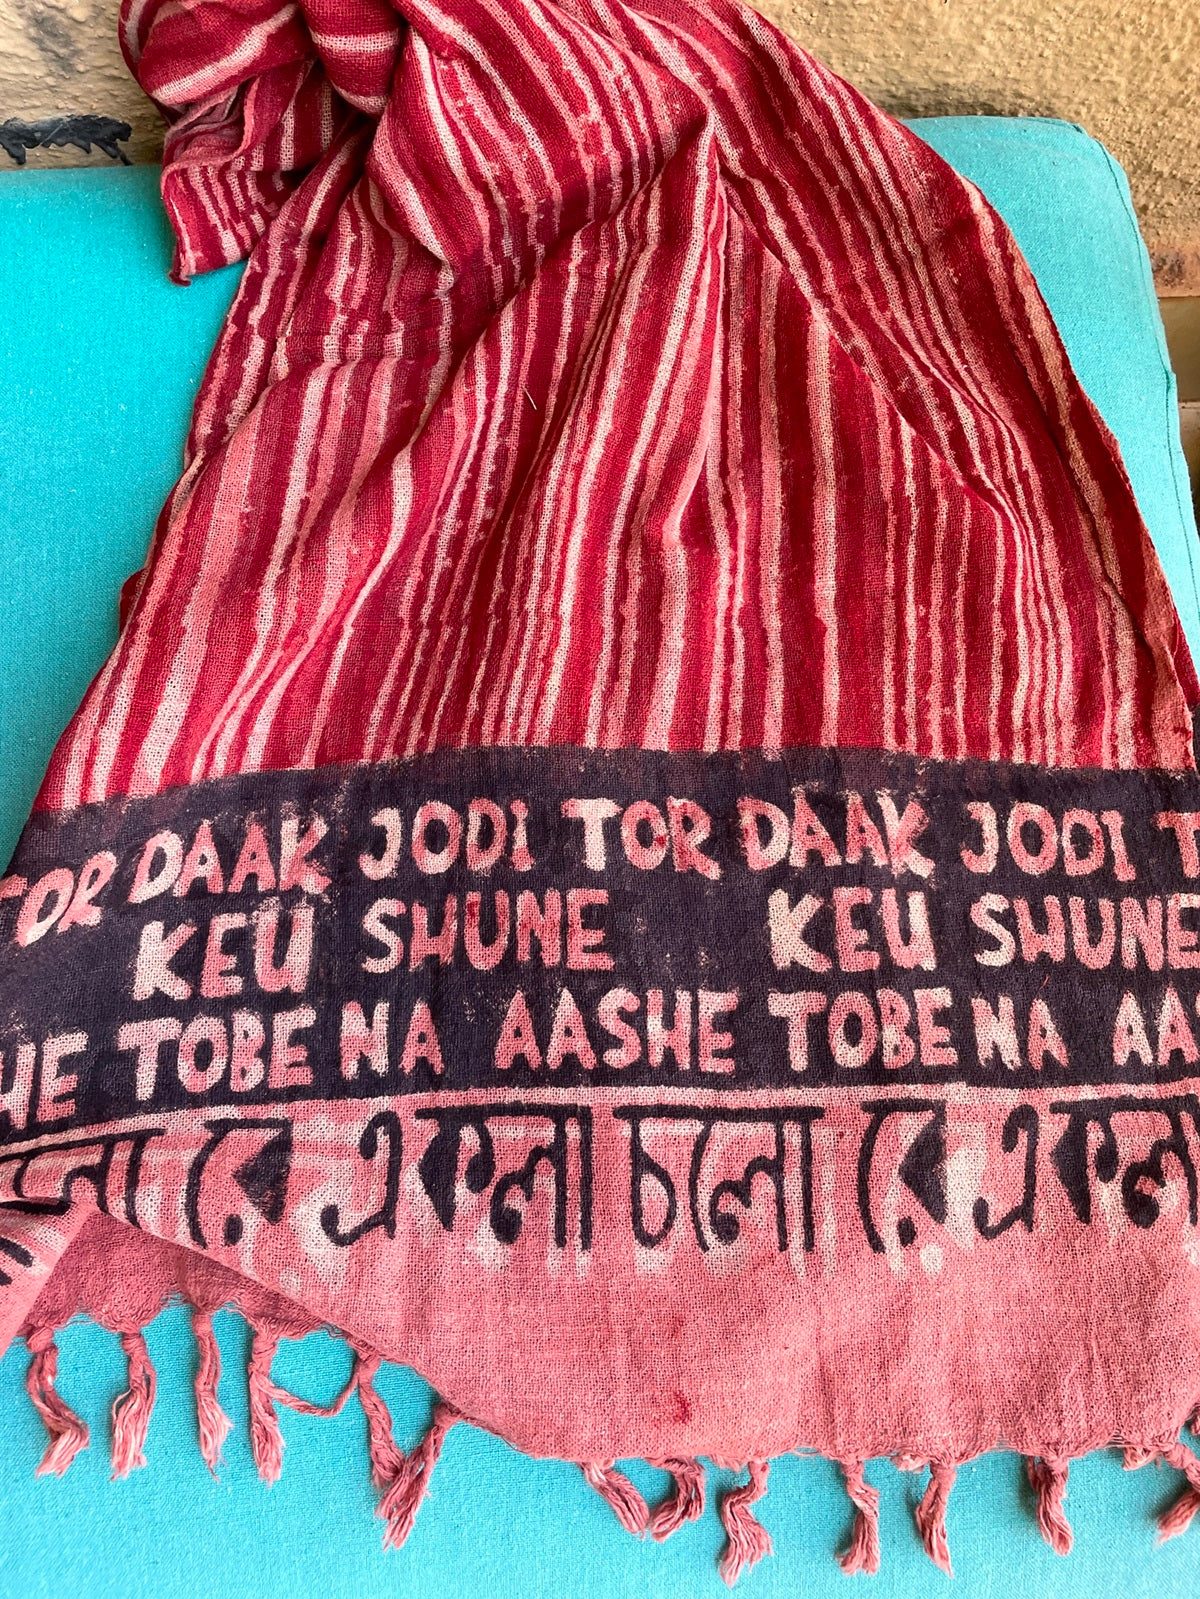 TOR DAAK JODI TOR DAAK JODI T
KEU SHUNE KEU SHUNE
HE TOBE NA AASHE TOBE NA AA
লো রে একলা চলো রে একলা